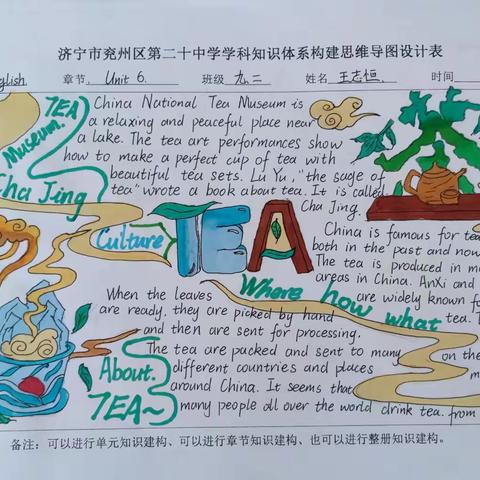 济宁市兖州区第二十中学学科知识体系构建思维导图设计表
glish 章节. Unit 6. 班级 九.二 姓名 王志恒. 时间
TEA
Museum.
Cha Jing
China National Tea Museum is
a relaxing and peaceful place near
a lake. The tea art performances show
how to make a perfect cup of tea with
beautiful tea sets. Lu Yu, "the sage of
tea" wrote a book about tea. It is called
Cha Jing.
Culture
TEA
China is famous for tea
both in the past and now
The tea is produced in m
areas in China. AnXi and
are widely known f
tea.
Where how what
When the leaves
are ready, they are picked by hand
and then are sent for processing.
About.
TEA~
The tea are packed and sent to many
different countries and places
around China. It seems that
many people all over the world drink tea. from
on the
m
备注：可以进行单元知识建构、可以进行章节知识建构、也可以进行整册知识建构。